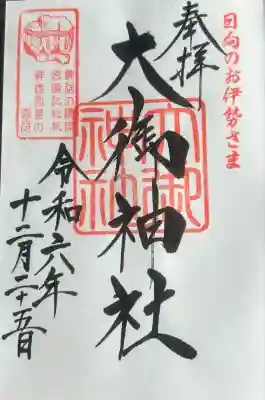 日向のお伊勢さま
奉拝
大御神社
大御
神社
令和六年
十二月二十五日